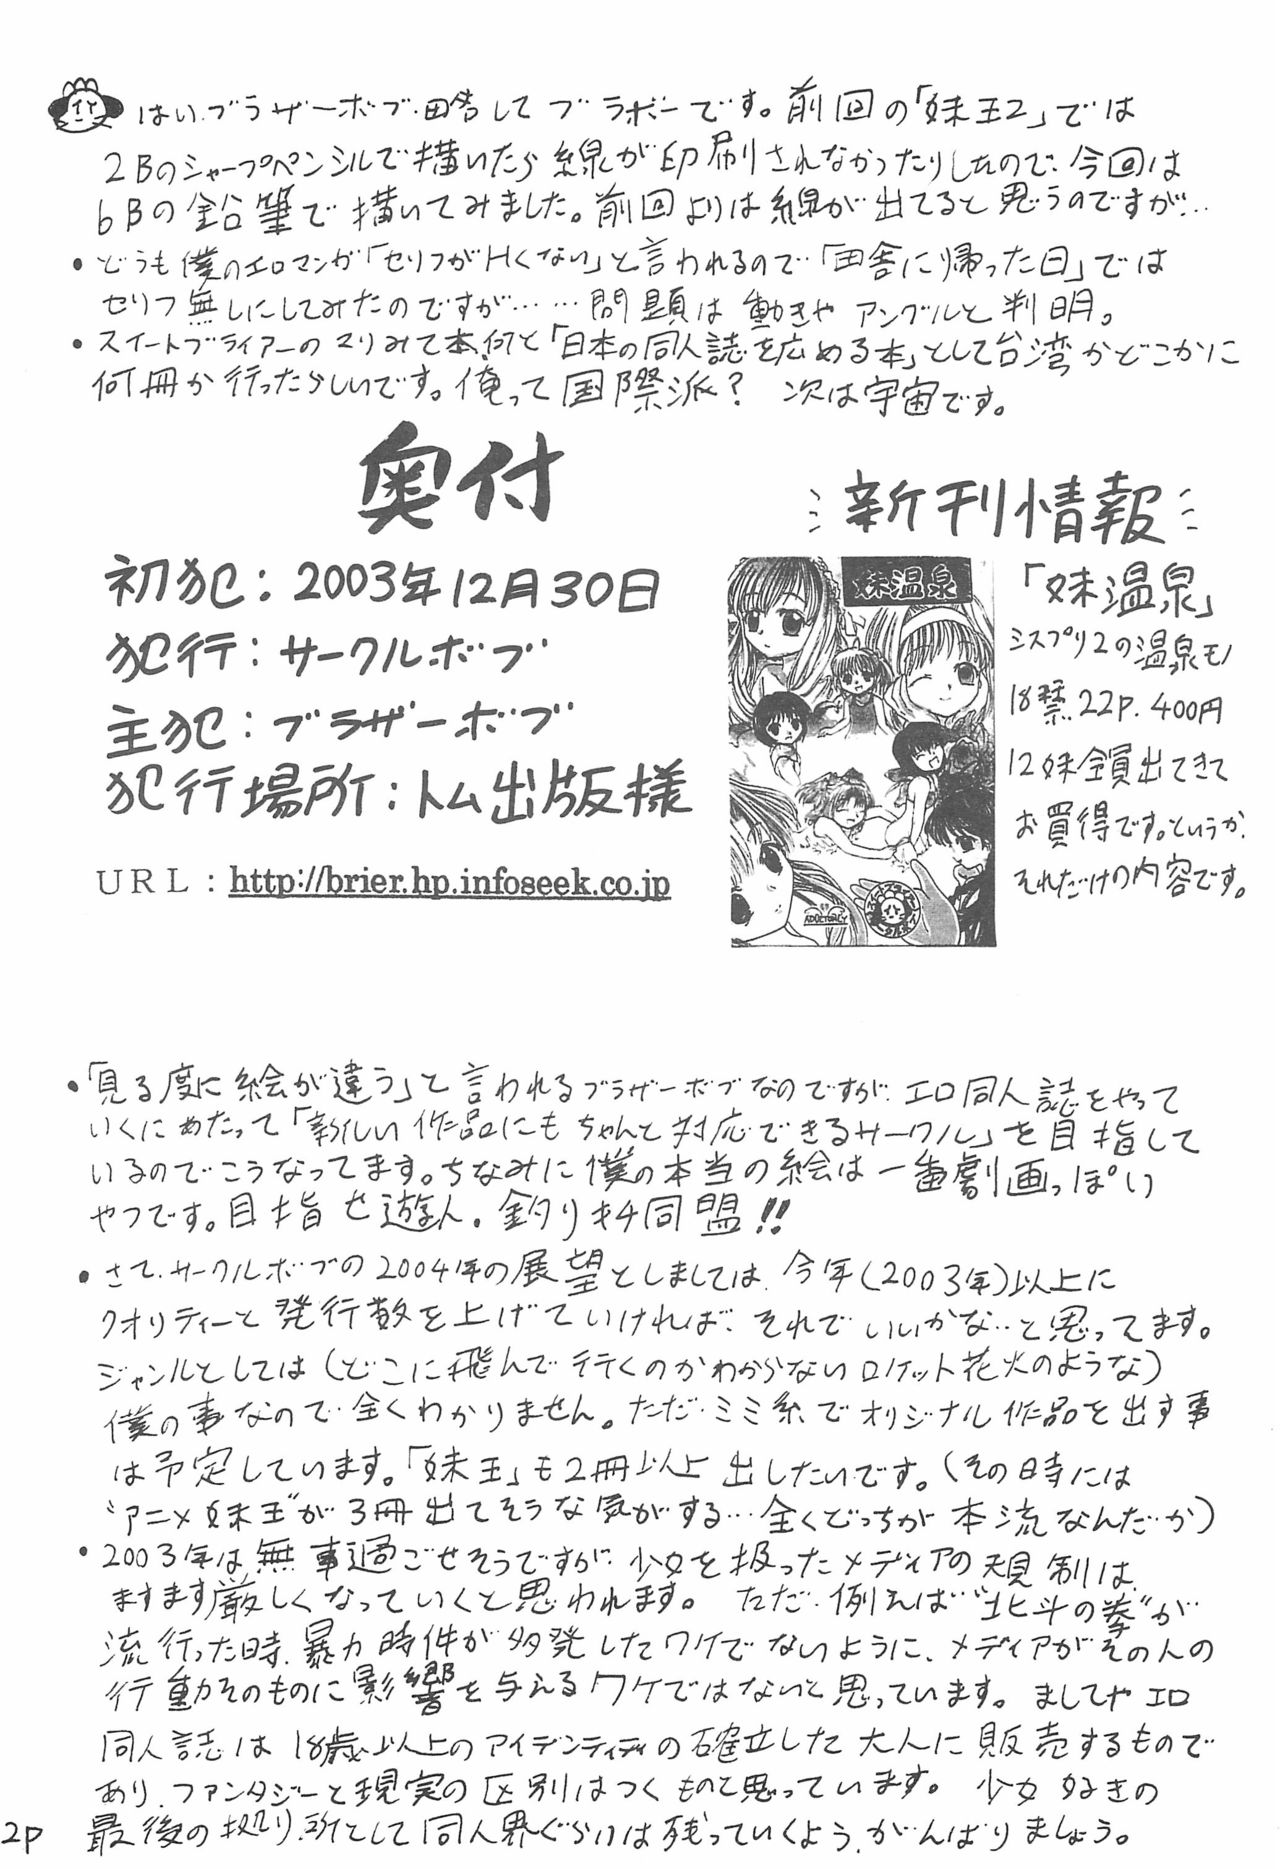 はい、ブラザーボブ、略してブラボーです。前回の「妹王2」では
2Bのシャープペンシルで描いたら線が印刷されなかったりしたので、今回は
6Bの鉛筆で描いてみました。前回よりは線が出てると思うのですが…
・どうも僕のエロマンガ「セリフがHくない」と言われるので「田舎に帰った日」では
セリフ無しにしてみたのですが……問題は動きやアングルと判明。
・スイートブライアーのマリみて本、何と「日本の同人誌を広める本」として台湾かどこかに
何冊か行ったらしいです。俺って国際派? 次は宇宙です。
奥付
初犯:2003年12月30日
犯行:サークルボブ
主犯:ブラザーボブ
犯行場所:トム出版様
URL:http://brier.hp.infoseek.co.jp
新刊情報
妹温泉
ADULT ONLY
「妹温泉」
シスプリ2の温泉モノ
18禁.22P.400円
12妹全員出てきて
お買得です。というか、
それだけの内容です。
・「見る度に絵が違う」と言われるブラザーボブなのですが、エロ同人誌をやって
いくにあたって「新しい作品にもちゃんと対応できるサークル」を目指して
いるのでこうなってます。ちなみに僕の本当の絵は一番劇画っぽい
やつです。目指せ遊人、釣りキチ同盟!!
・さて、サークルボブの2004年の展望としましては、今年(2003年)以上に
クオリティーと発行数を上げていければ、それでいいかな…と思ってます。
ジャンルとしては(どこに飛んで行くのかわからないロケット花火のような)
僕の事なので、全くわかりません。ただ、ミミ系でオリジナル作品を出す事
は予定しています。「妹王」も2冊以上出したいです。(その時には
"アニメ妹王"が3冊出てそうな気がする…全くどっちが本流なんだか)
・2003年は無事過ごせそうですが、少女を扱ったメディアの規制は、
ますます厳しくなっていくと思われます。 ただ、例えば"北斗の拳"が
流行った時、暴力時件が多発したワケでないように、メディアがその人の
行動そのものに影響を与えるワケではないと思っています。ましてやエロ
同人誌は18歳以上のアイデンティティの確立した大人に販売するもので
あり、ファンタジーと現実の区別はつくものと思っています。 少女好きの
最後の拠り所として同人界ぐらいは残っていくよう、がんばりましょう。
2P